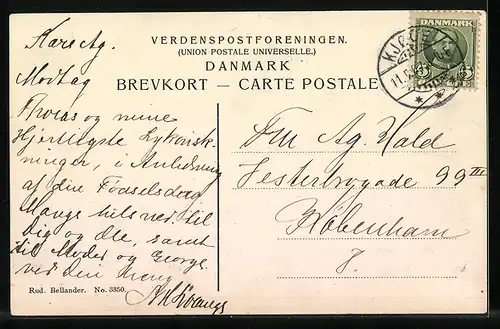 VERDENSPOSTFORENINGEN.
(UNION POSTALE UNIVERSELLE.)
DANMARK
BREVKORT – CARTE POSTALE
DANMARK
5 5
KJØGE
11.
Kære Ag.
Modtag
og mine
Hjerteligste Lykønsk-
ninger, i Anledning
af din Fødselsdag
Mange hilsner til
dig og alle, samt
til Moder og George
ved den
Frk Ag. Hald
Vesterbrogade 99 III
København
V.
Rud. Bellander. No. 3850.